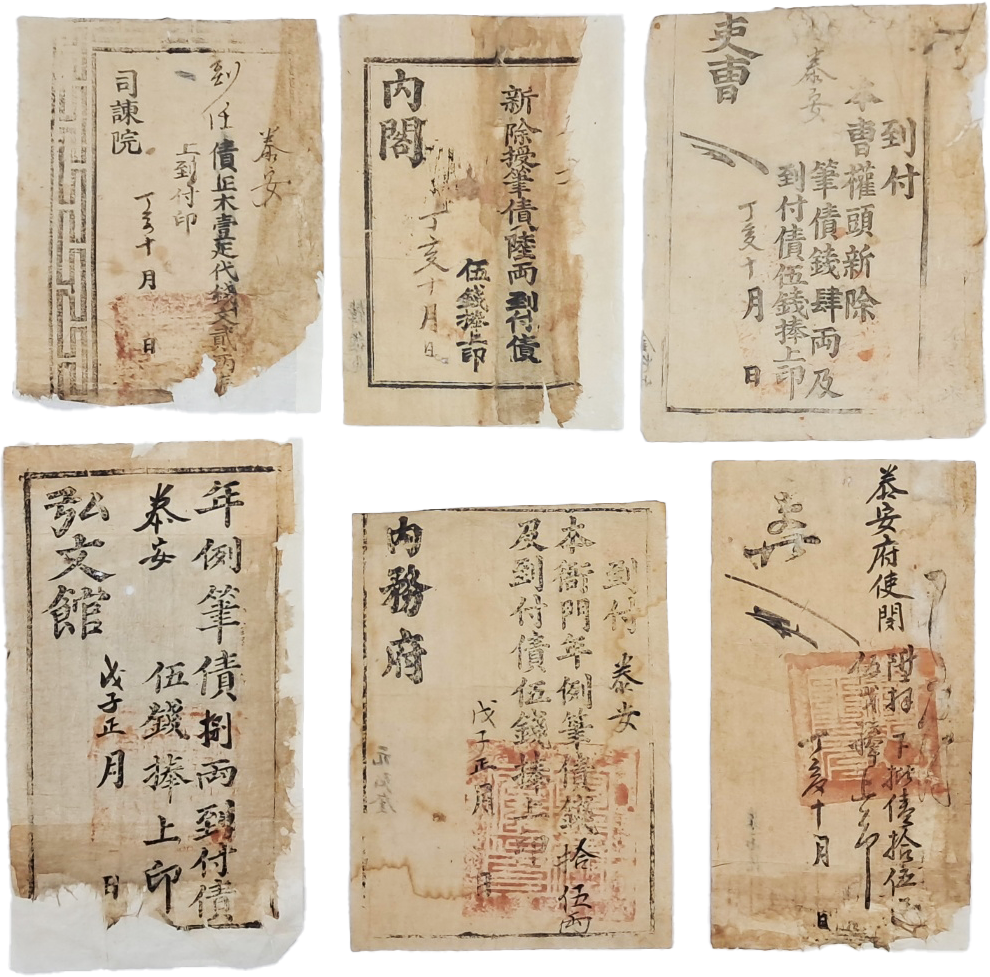 泰安
到任債正木壹疋代錢文貳兩
上到付印
丁亥十月 日
司諫院
新除授筆債陸兩到付債
伍錢捧上印
丁亥十月 日
內閣
到付
本曹權頭新除
筆債錢肆兩及
到付債伍錢捧上印
泰安
丁亥十月 日
吏曹
年例筆債捌兩到付債
泰安 伍錢捧上印
戊子正月 日
弘文館
到付 泰安
本衙門年例筆債錢拾伍兩
及到付債伍錢捧上印
戊子正月 日
內務府
泰安府使閔
陞拜下批債拾伍
伍戔捧上印
丁亥十月 日